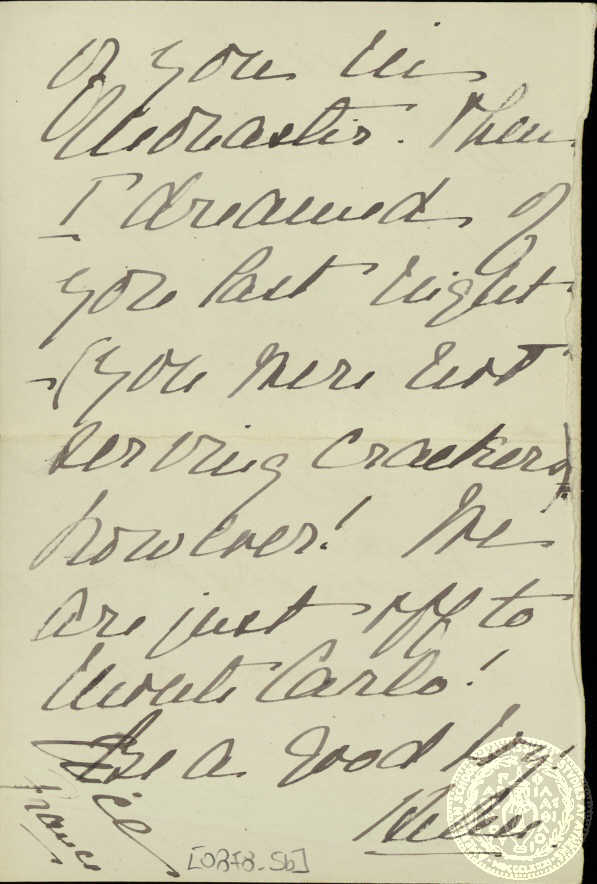 of you in
Monastir. Then
I dreamed of
you last night
(you were not
serving crackers)
however! We
are just off to
Monte Carlo!
Be a good boy.
Nice
France
[0878-5b]